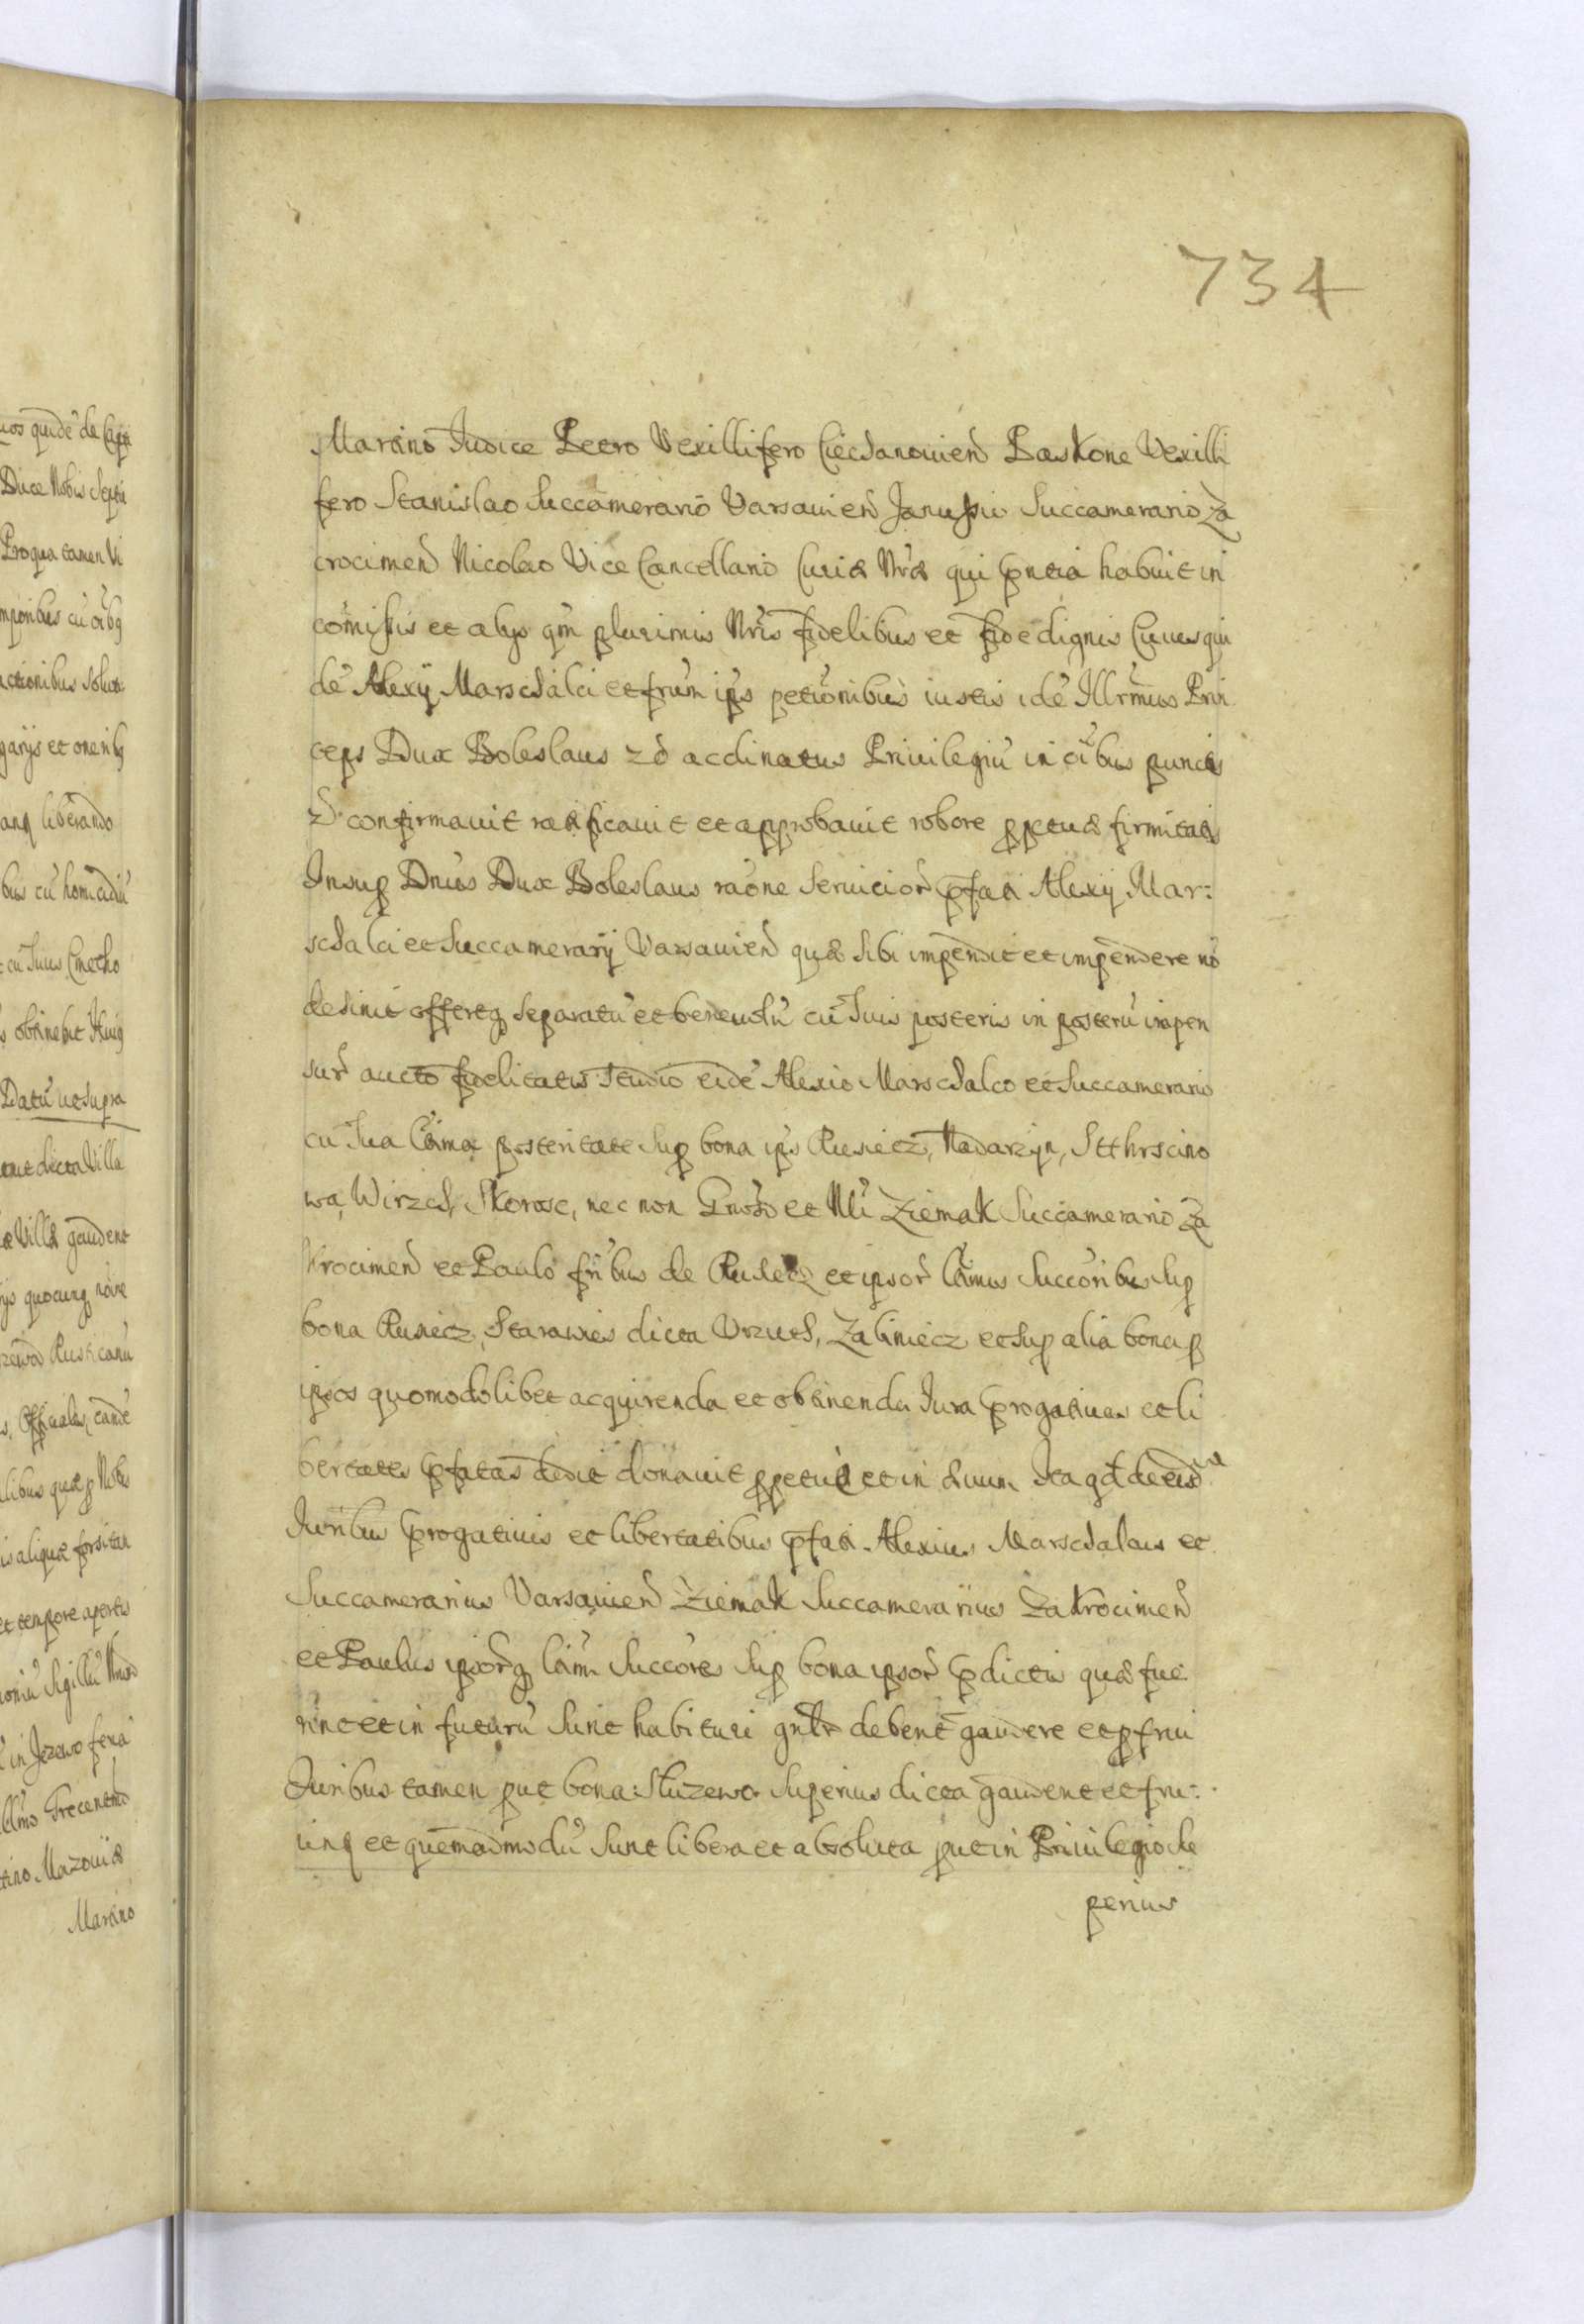 734
Martino Judice Petro Vexillifero Ciechanouien Paskone Vexilli
fero Stanislao Succamerario Varsauien Janussio Succamerario Za
crocimen Nicolao Vice Cancellario Curiæ Nræ qui pntia habuit in
comissis et alys qm plurimis Nris fidelibus et fide dignis Cuius qui
de Alexij Marschalci et frum ips petionibus iustis ide Illrmus Prin
ceps Dux Boleslaus acclinatus Priuilegiu in oibus punctis
confirmauit ratificauit et approbauit robore ppetuæ firmitatis
Insup Dnus Dux Boleslaus raone seruicior pfati Alexij Mar:
schalci et Succamerarij Varsauien quæ sibi impendit et impendere no
desinit offertq separatu et beneuolu cu suis posteris in posteru impen
sur aucto fidelitatis studio eide Alexio Marschalco et Succamerario
cu sua ltima posteritate sup bona ips Rusiecz, Nadarzyn, Stthrscino
wa, Wirzch, Skorosc, nec non Gnoso et Nli Ziemak Succamerario Za
krocimen et Paulo fribus de Rusiecz et ipsor ltimis succoribus sup
bona Rusiecz, Starawies dicta Vrzuth, Zaliniecz et sup alia bona p
ipsos quomodolibet acquirenda et obtinenda Jura progatiuas et li
bertates pfatas dedit donauit ppetue et in æuum Ita qd de eisd
Juribus progatiuis et libertatibus pfati Alexius Marschalcus et
Succamerarius Varsauien Ziemak Succamerarius Zakrocimen
et Paulus ipsorq ltimi succores sup bona ipsor pdictis quæ fue
rint et in futuru sunt habituri gnlr debent gaudere et pfrui
Juribus tamen put bona Sluzewo superius dicta gaudent et fru:
unt et quemadmodu sunt libera et absoluta put in Priuilegio de
perius
uos quide de Capi
Duce Nobis Septi
Pro qua tamen Vi
mporibus cu oibq
actionibus solut
garijs et onerib
anq liberando
bus cu homicidiu
cu suus Cmetho
s obtinebit Huiq
Datu ut supra
enet dicta Villa
æ Villæ gaudent
ijs quocunq nove
Rusticanu
s, Officiales, eande
libus quæ p Nobis
is aliquæ forsitan
et tempore apertis
oniu Sigillu Nrum
in Jezewo feria
llmo Trecentmo
tino Mazouiæ
Martino